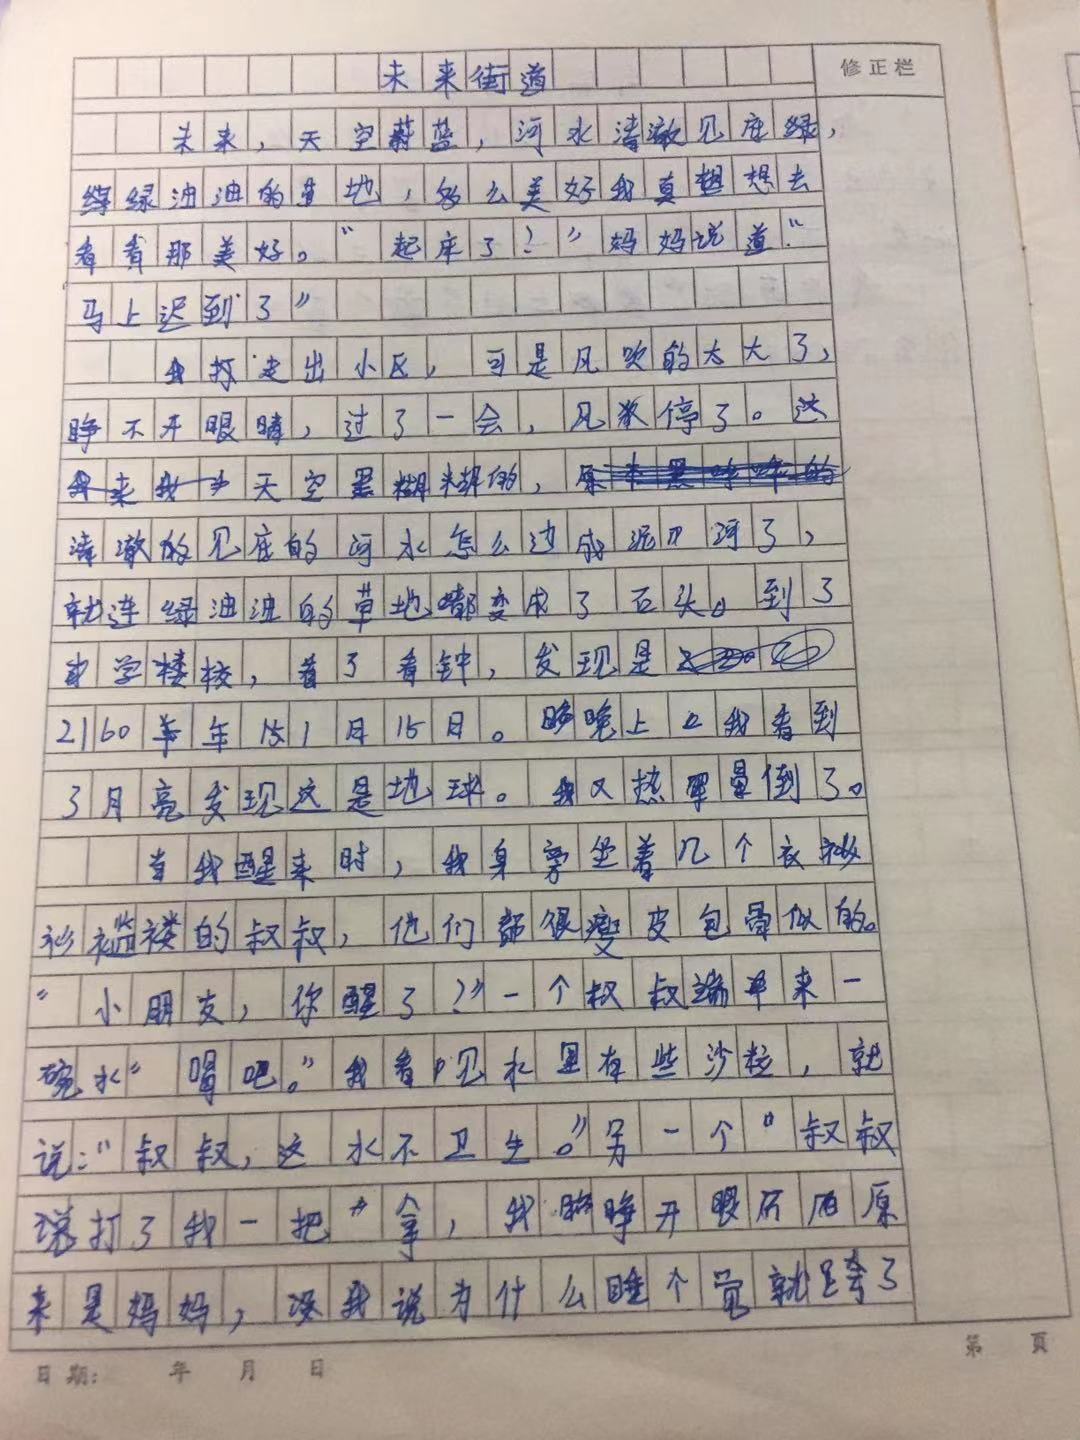 未来街道
修正栏
未来，天空蔚蓝，河水清澈见底绿，
绿油油的草地，多么美好我真想想去
看看那美好。“起床了？”妈妈说道“
马上迟到了”
我打走出小区，可是风吹的太大了，
睁不开眼睛，过了一会，风停了。这
天空黑糊糊的，
清澈的见底的河水怎么边成泥河了，
就连绿油油的草地都变成了石头。到了
学校，看了看钟，发现是
2160年1月15日。晚上我看到
了月亮发现这是地球。我又热晕倒了。
当我醒来时，我身旁坐着几个衣衫
褴褛的叔叔，他们都很瘦皮包骨似的。
“小朋友，你醒了？”一个叔叔端来一
碗水“喝吧。”我看见水里有些沙粒，就
说：“叔叔，这水不卫生。”另一个叔叔
打了我一把“拿，我睁开眼原
来是妈妈，没我说为什么睡个觉就跨了
日期： 年 月 日
第 页